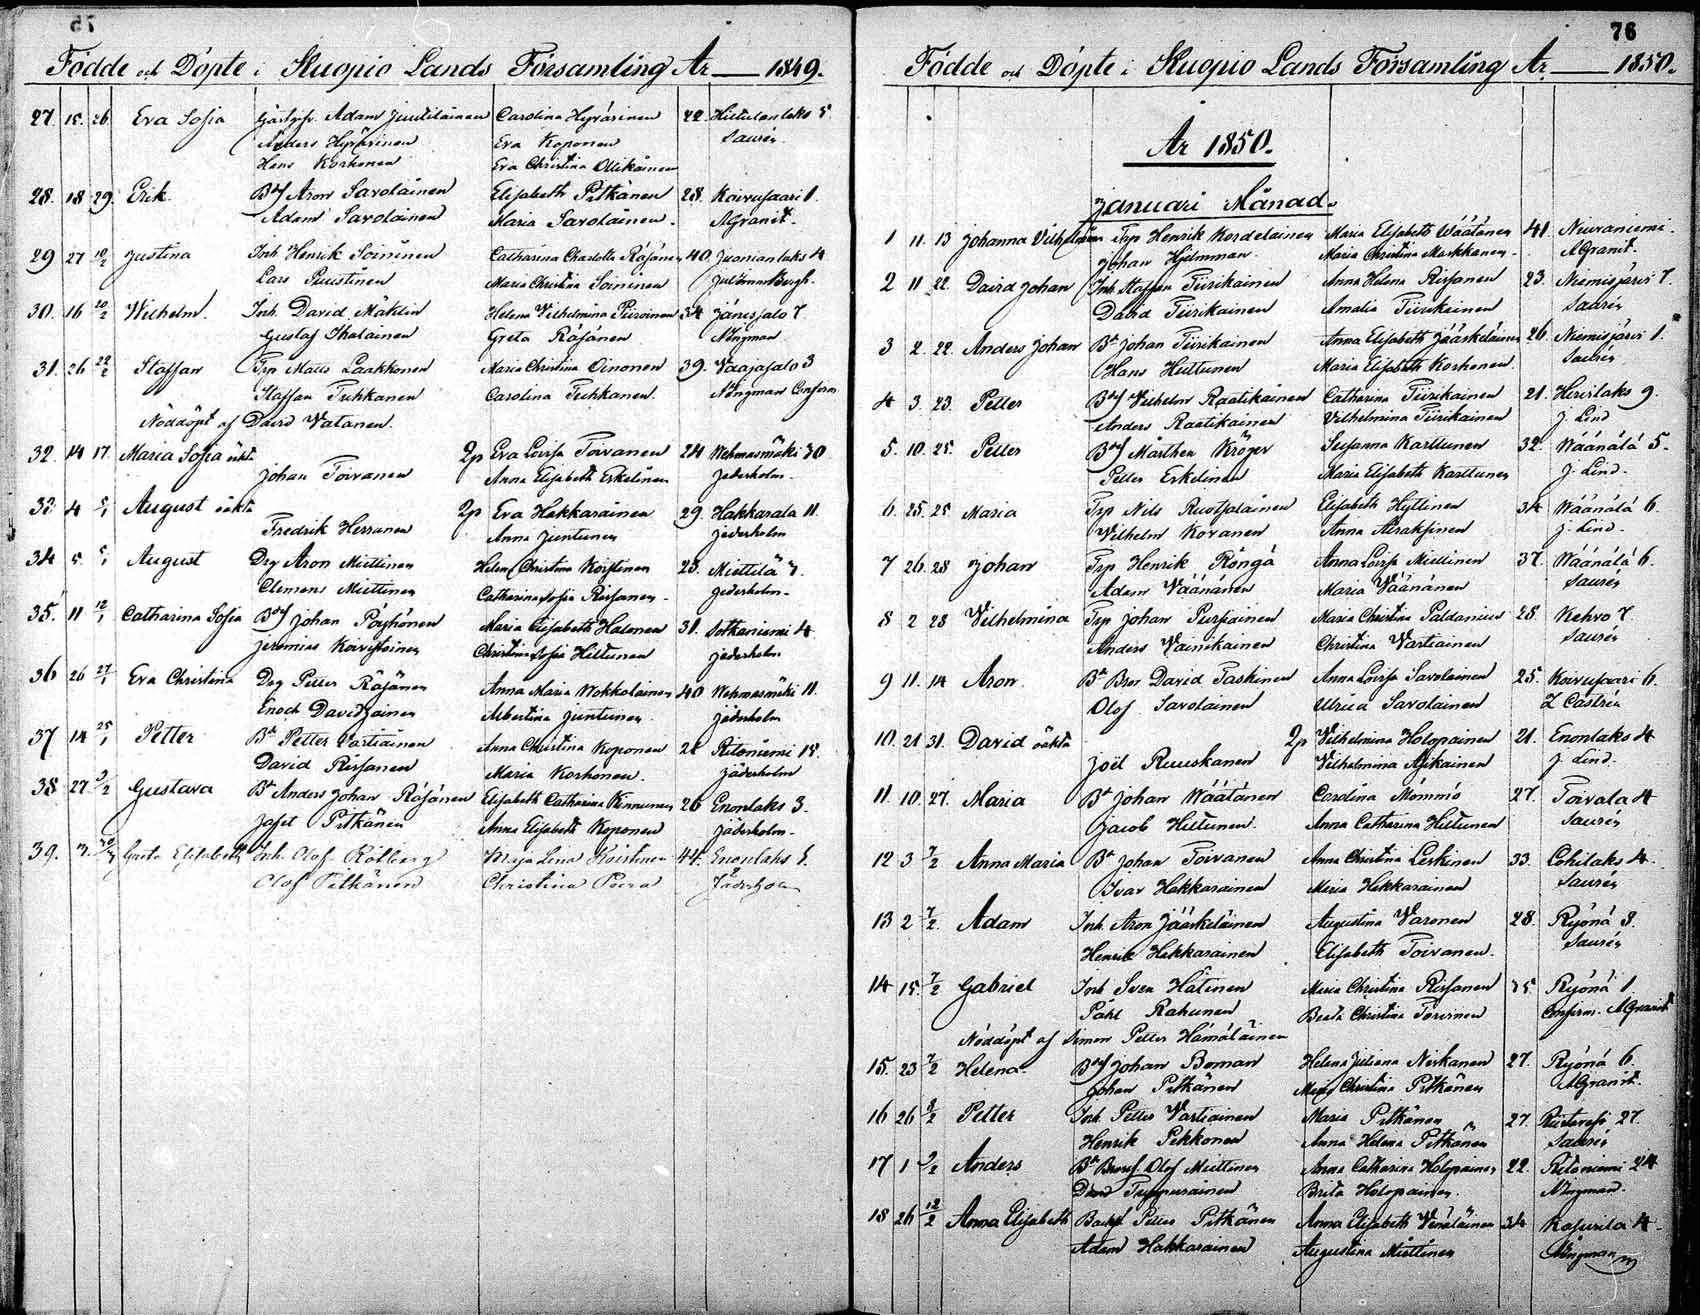 75
Födde och Döpte i Kuopio Lands Församling År 1849.
27. 15. 26. Eva Sofia Adam Juutilainen Carolina Hyvärinen 22. Hietulanlaks 5
Anders Hyvärinen Eva Koponen Saurén
Hans Korhonen Eva Christina Ollikainen
28. 18 29. Erik Aron Savolainen Elisabeth Pitkänen 28. Koivusaari 1.
Adam Savolainen Maria Savolainen. AGranit.
29 27 10/2 Justina Inh. Henrik Soininen Catharina Charlotta Räsänen 40. Juonianlaks 4
Lars Puustinen Maria Christina Soininen
30. 16 20/2 Wilhelm. Inh. David Mähtin Helena Vilhelmina Piiroinen 34 Jänissalo 7.
Gustaf Ihalainen Greta Räsänen NIngman
31. 26 22/2 Staffan Trp Matts Laakkonen Maria Christina Oinonen 39. Vaajasalo 3
Staffan Tuhkanen Carolina Tuhkanen. NIngman
Nöddöpt af David Vatanen.
32. 14 17. Maria Sofia oäkta 2p Eva Lovisa Toivanen 24 Wehmasmäki 30
Johan Toivanen Anna Elisabeth Eskelinen Jäderholm.
33 4 5/1 August oäkta 2p Eva Hakkarainen 29. Hakkarala 11.
Fredrik Herranen Anna Juntunen Jederholm
34 5 5/1 August Drg Aron Miettinen Helena Christina Koistinen 23. Miettilä 7.
Clemens Miettinen Catharina Sofia Rissanen. Jederholm.
35. 11 12/1 Catharina Sofia Johan Pöyhönen Maria Elisabeth Halonen 31. Sotkaniemi 4
Jeremias Koivistoinen Christina Sofia Hiltunen Jederholm
36 26 27/1 Eva Christina Drg Petter Räsänen Anna Maria Wokkolainen 40 Wehmasmäki 11.
Enoch Davidzainen Albertina Juntunen. Jäderholm
37 14 25/1 Petter Bd Petter Vartiainen Anna Christina Koponen 21 Ritoniemi 15.
David Rissanen Maria Korhonen. Jäderholm
38. 27 3/2 Gustava Bd Anders Johan Räsänen Elisabeth Catharina Kinnunen 26 Enonlaks 3.
Jafet Pitkänen Anna Elisabeth Koponen Jäderholm.
39. 7. Greta Elisabeth Inh. Olof Rötberg Maja Lena Koistinen 44. Enonlaks 1.
Olof Pitkänen Christina Jäderholm
76
Födde och Döpte i Kuopio Lands Församling År 1850.
År 1850.
Januari Månad.
1 11. 13 Johanna Vilhelmina Trp Henrik Kordelainen Maria Elisabeth Wäätänen 41. Niuvaniemi.
Johan Hjelmman Maria Christina Markkanen. AGranit.
2 11. 22. David Johan Inh Staffan Tiirikainen Anna Helena Rissanen 23. Niemisjärvi 7.
David Tiirikainen Amalia Tiirikainen Saurén
3 2. 22. Anders Johan Bd Johan Tiirikainen Anna Elisabeth Jääskeläinen 26. Niemisjärvi 1.
Hans Huttunen Maria Elisabeth Korhonen. Saurén
4 3. 23. Petter Vilhelm Raatikainen Catharina Tiirikainen 21. Hirvilaks 9.
Anders Raatikainen Vilhelmina Tiirikainen J. Lind
5. 10. 25. Petter Mårthen Kröger Susanna Karttunen 32. Wäänälä 5.
Petter Eskelinen Maria Elisabeth Karttunen J. Lind.
6. 25. 25 Maria Trp Nils Ruotsalainen Elisabeth Hyttinen 34 Wäänälä 6.
Wilhelm Kovanen Anna Atraksinen J. Lind.
7 26. 28 Johan Trp Henrik Röngä Anna Lovisa Miettinen 37. Wäänälä 6.
Adam Väänänen Maria Väänänen Saurén
8 2 28 Wilhelmina Trp Johan Pursiainen Maria Christina Paldanius 28. Kehvo 7
Anders Vainikainen Christina Vartiainen Saurén
9 11. 14 Aron Bd Bror David Taskinen Anna Lovisa Savolainen 25. Koivusaari 6.
Olof Savolainen Ulrica Savolainen Z Castrén
10. 21 31. David oäkta 2p Vilhelmina Holopainen 21. Enonlaks 4
Joël Ruuskanen Vilhelmina Asikainen J. Lind.
11. 10. 27. Maria Bd Johan Wäätänen Carolina Mömmö 27. Toivala 4
Jacob Hiltunen. Anna Catharina Hiltunen Saurén
12 3 7/2 Anna Maria Bd Johan Toivanen Anna Christina Leskinen 33. Kohilaks 4.
Ivar Hakkarainen Maria Hakkarainen Saurén
13 2 7/2. Adam Inh. Aron Jääskeläinen Augustina Varonen 28. Ryönä 8.
Henrik Hakkarainen Elisabeth Toivanen. Saurén
14 15. 7/2 Gabriel Inh Sven Hätinen Maria Christina Rissanen 35 Ryönä 1.
Påhl Rahunen Beata Christina Toivonen Confirm. AGranit
Nöddöpt af Simon Petter Hämäläinen
15. 23 7/2 Helena Johan Boman Helena Juliana Niskanen 27. Ryönä 6.
Johan Pitkänen Maria Christina Pitkänen AGranit.
16 26 8/2 Petter Inh. Petter Vartiainen Maria Pitkänen 27. Puutosmäki 27.
Henrik Pekkonen Anna Helena Pitkänen Saurén
17 1 9/2 Anders Olof Miettinen Anna Catharina Holopainen 22. Ritoniemi 24
David Tuppurainen Brita Holopainen. NIngman.
18 26 12/2 Anna Elisabeth Petter Pitkänen Anna Elisabeth Venäläinen 34 Kasurila 4.
Adam Hakkarainen Augustina Miettinen NIngman